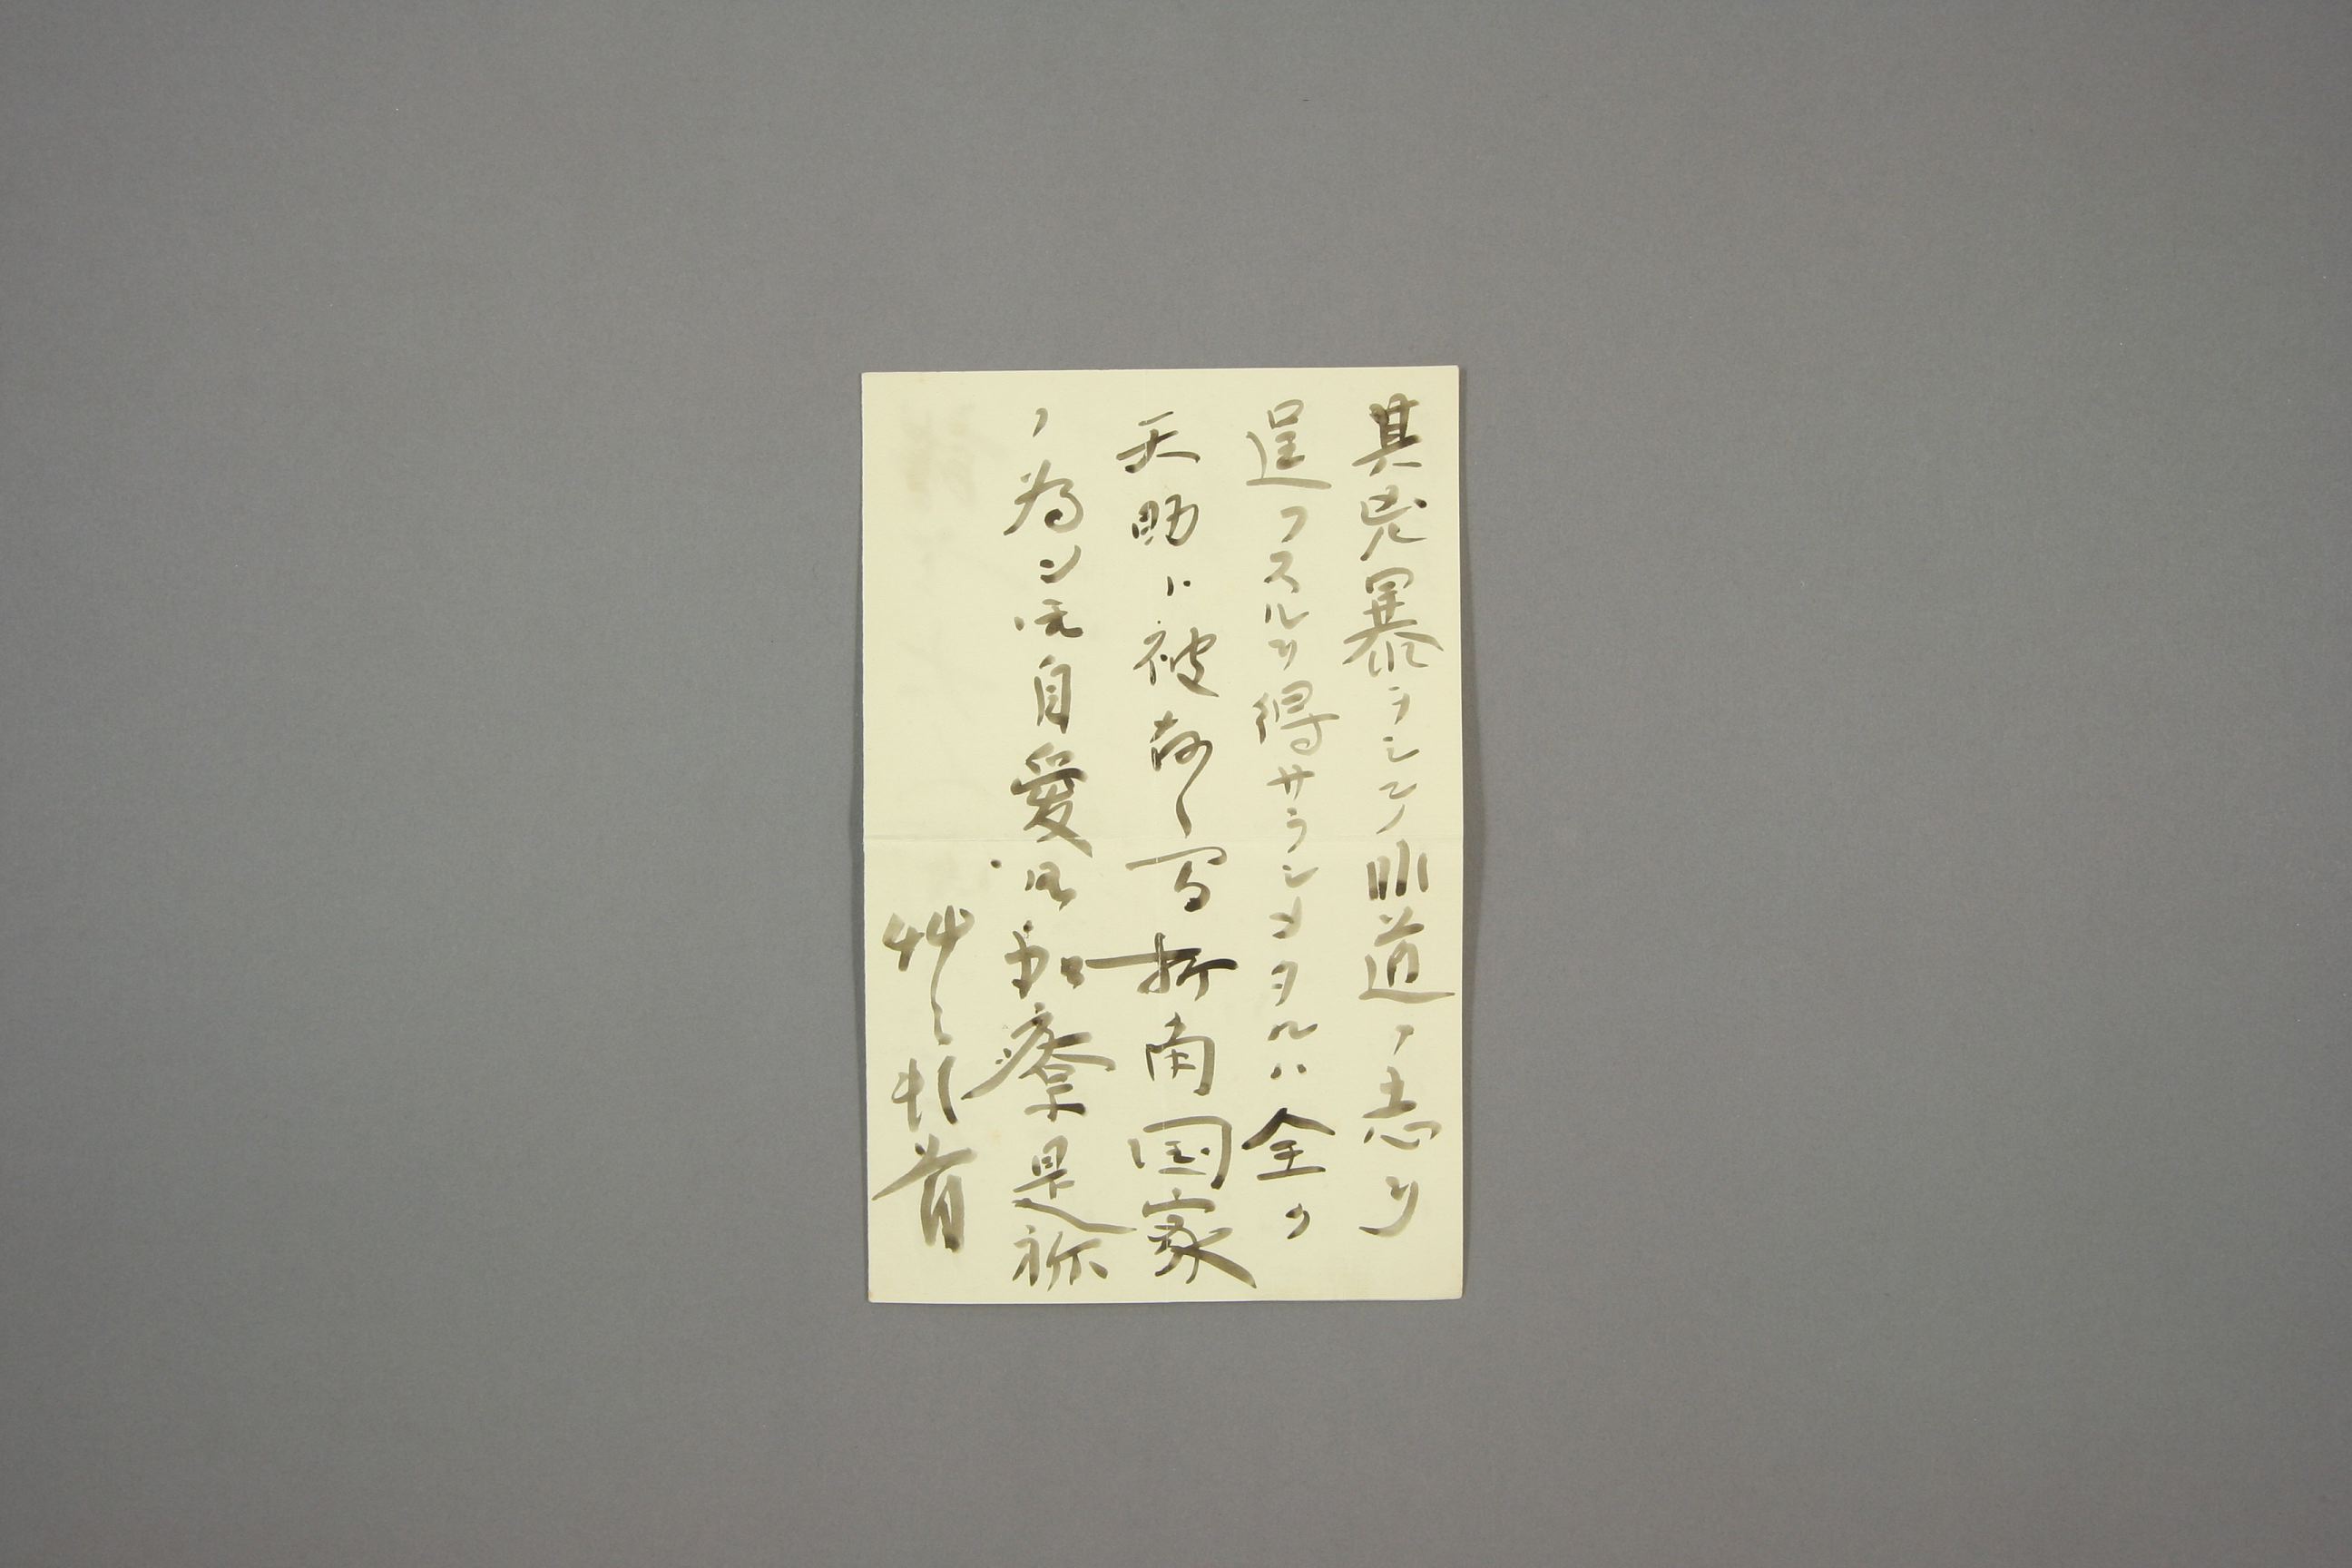 其兇暴ヲシテ非道ノ志ヲ
逞フスルヲ得サラシメタルハ全ク
天助ニ被存候 写折角国家
ノ為〆御自愛御加療是祈
艸々頓首